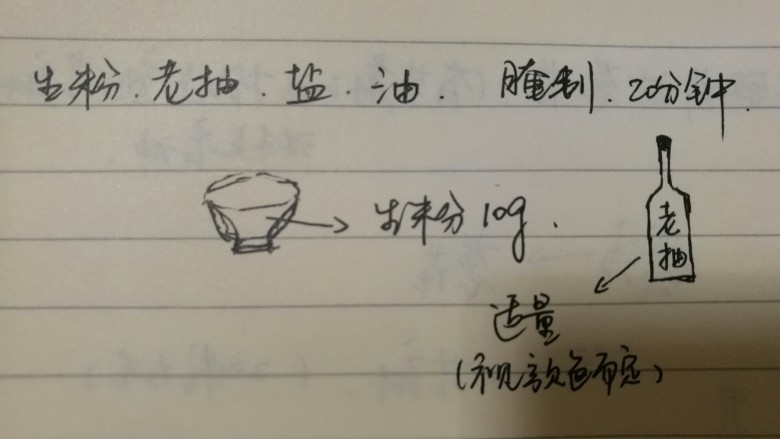 生粉.老抽.盐.油. 腌制.20分钟.
生粉10g.
老抽
适量
(视颜色而定)